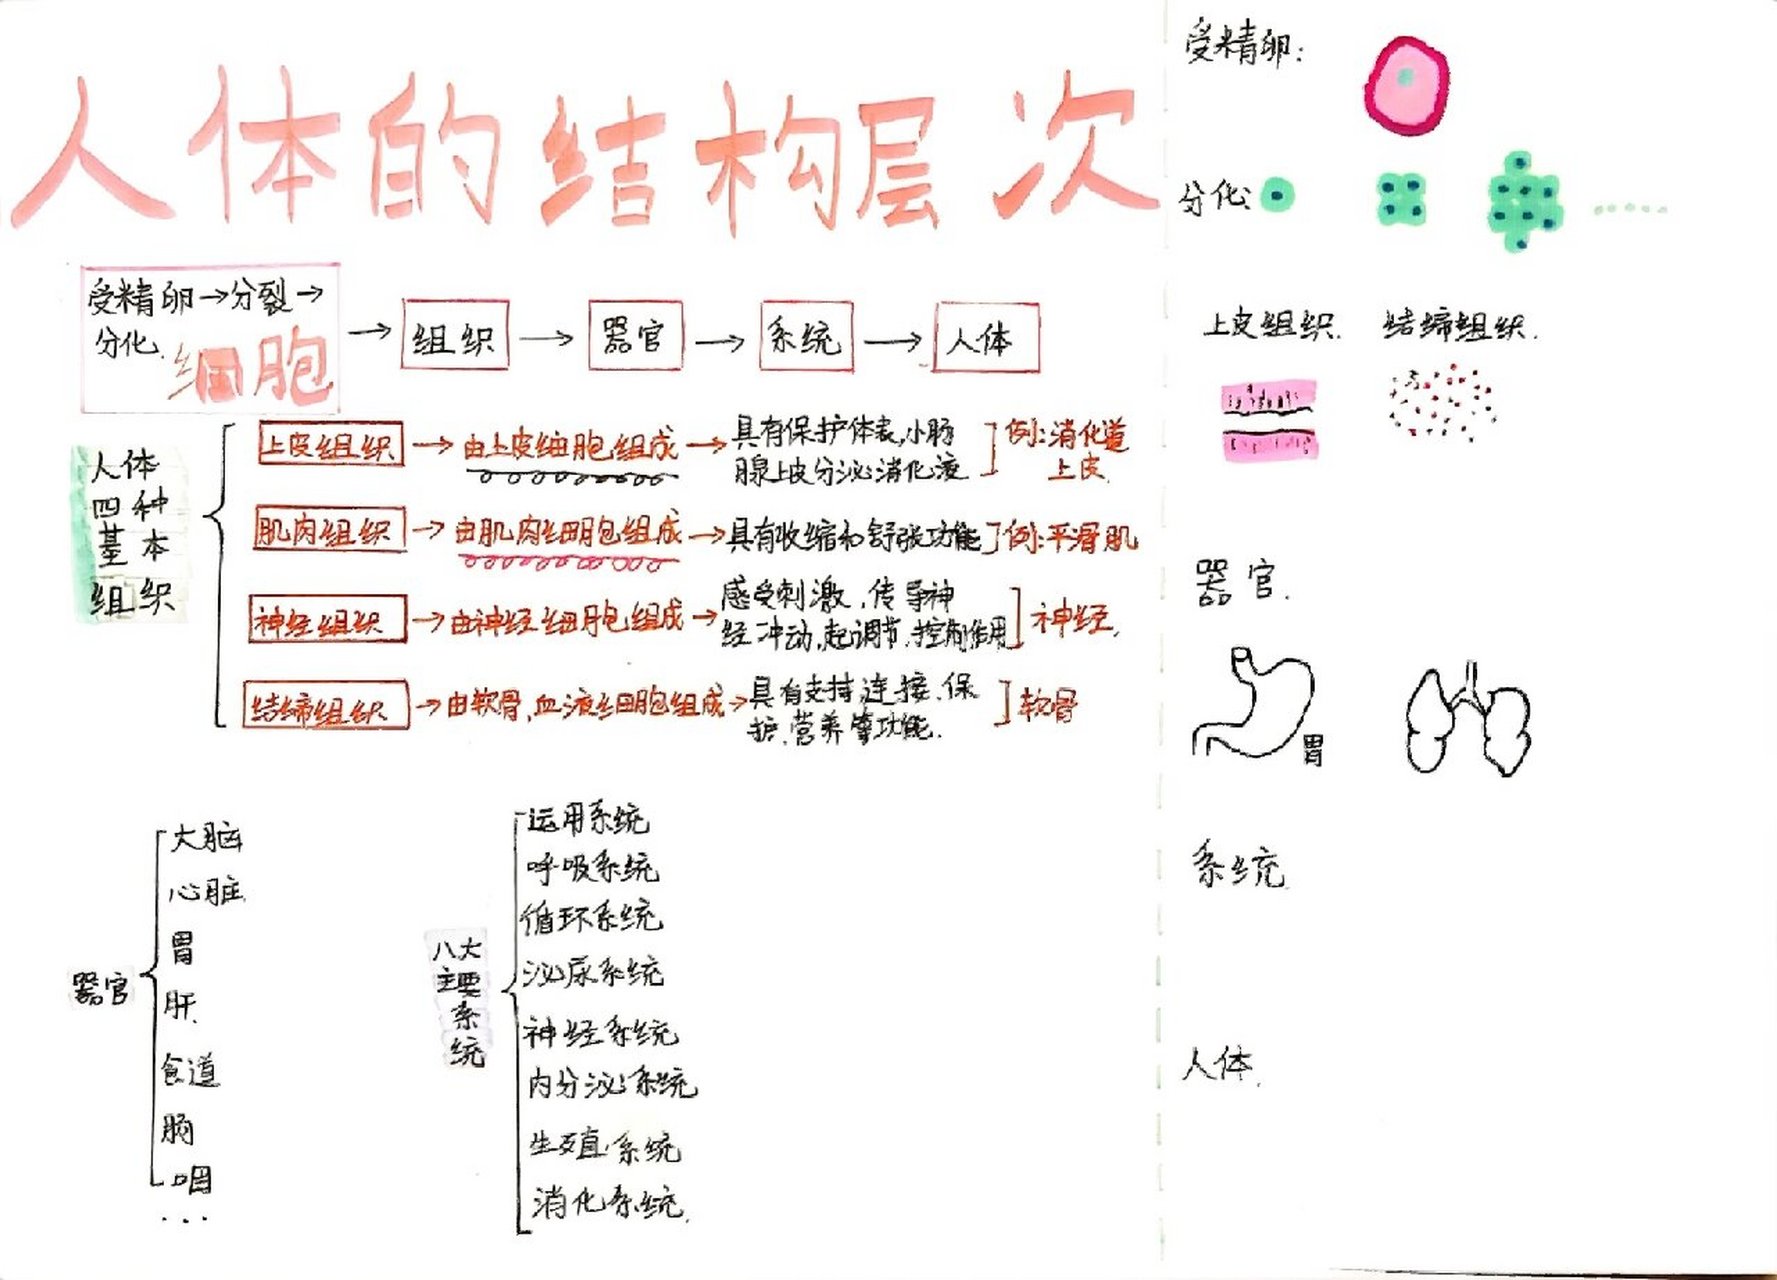 人体的结构层次
受精卵→分裂→
分化.
细胞
→ 组织 → 器官 → 系统 → 人体
人体
四种
基本
组织
上皮组织 → 由上皮细胞组成 → 具有保护体表,小肠
腺上皮分泌消化液
例:消化道
上皮.
肌肉组织 → 由肌肉细胞组成 → 具有收缩和舒张功能 例:平滑肌
神经组织 → 由神经细胞组成 → 感受刺激,传导神
经冲动,起调节,控制作用
神经.
结缔组织 → 由软骨,血液细胞组成 → 具有支持,连接、保
护、营养等功能.
软骨
器官
大脑
心脏.
胃
肝.
食道
肠
咽
...
八大
主要
系
统
运用系统
呼吸系统
循环系统
泌尿系统
神经系统
内分泌系统
生殖系统
消化系统.
受精卵:
分化:
上皮组织. 结缔组织.
器官.
胃
系统.
人体.